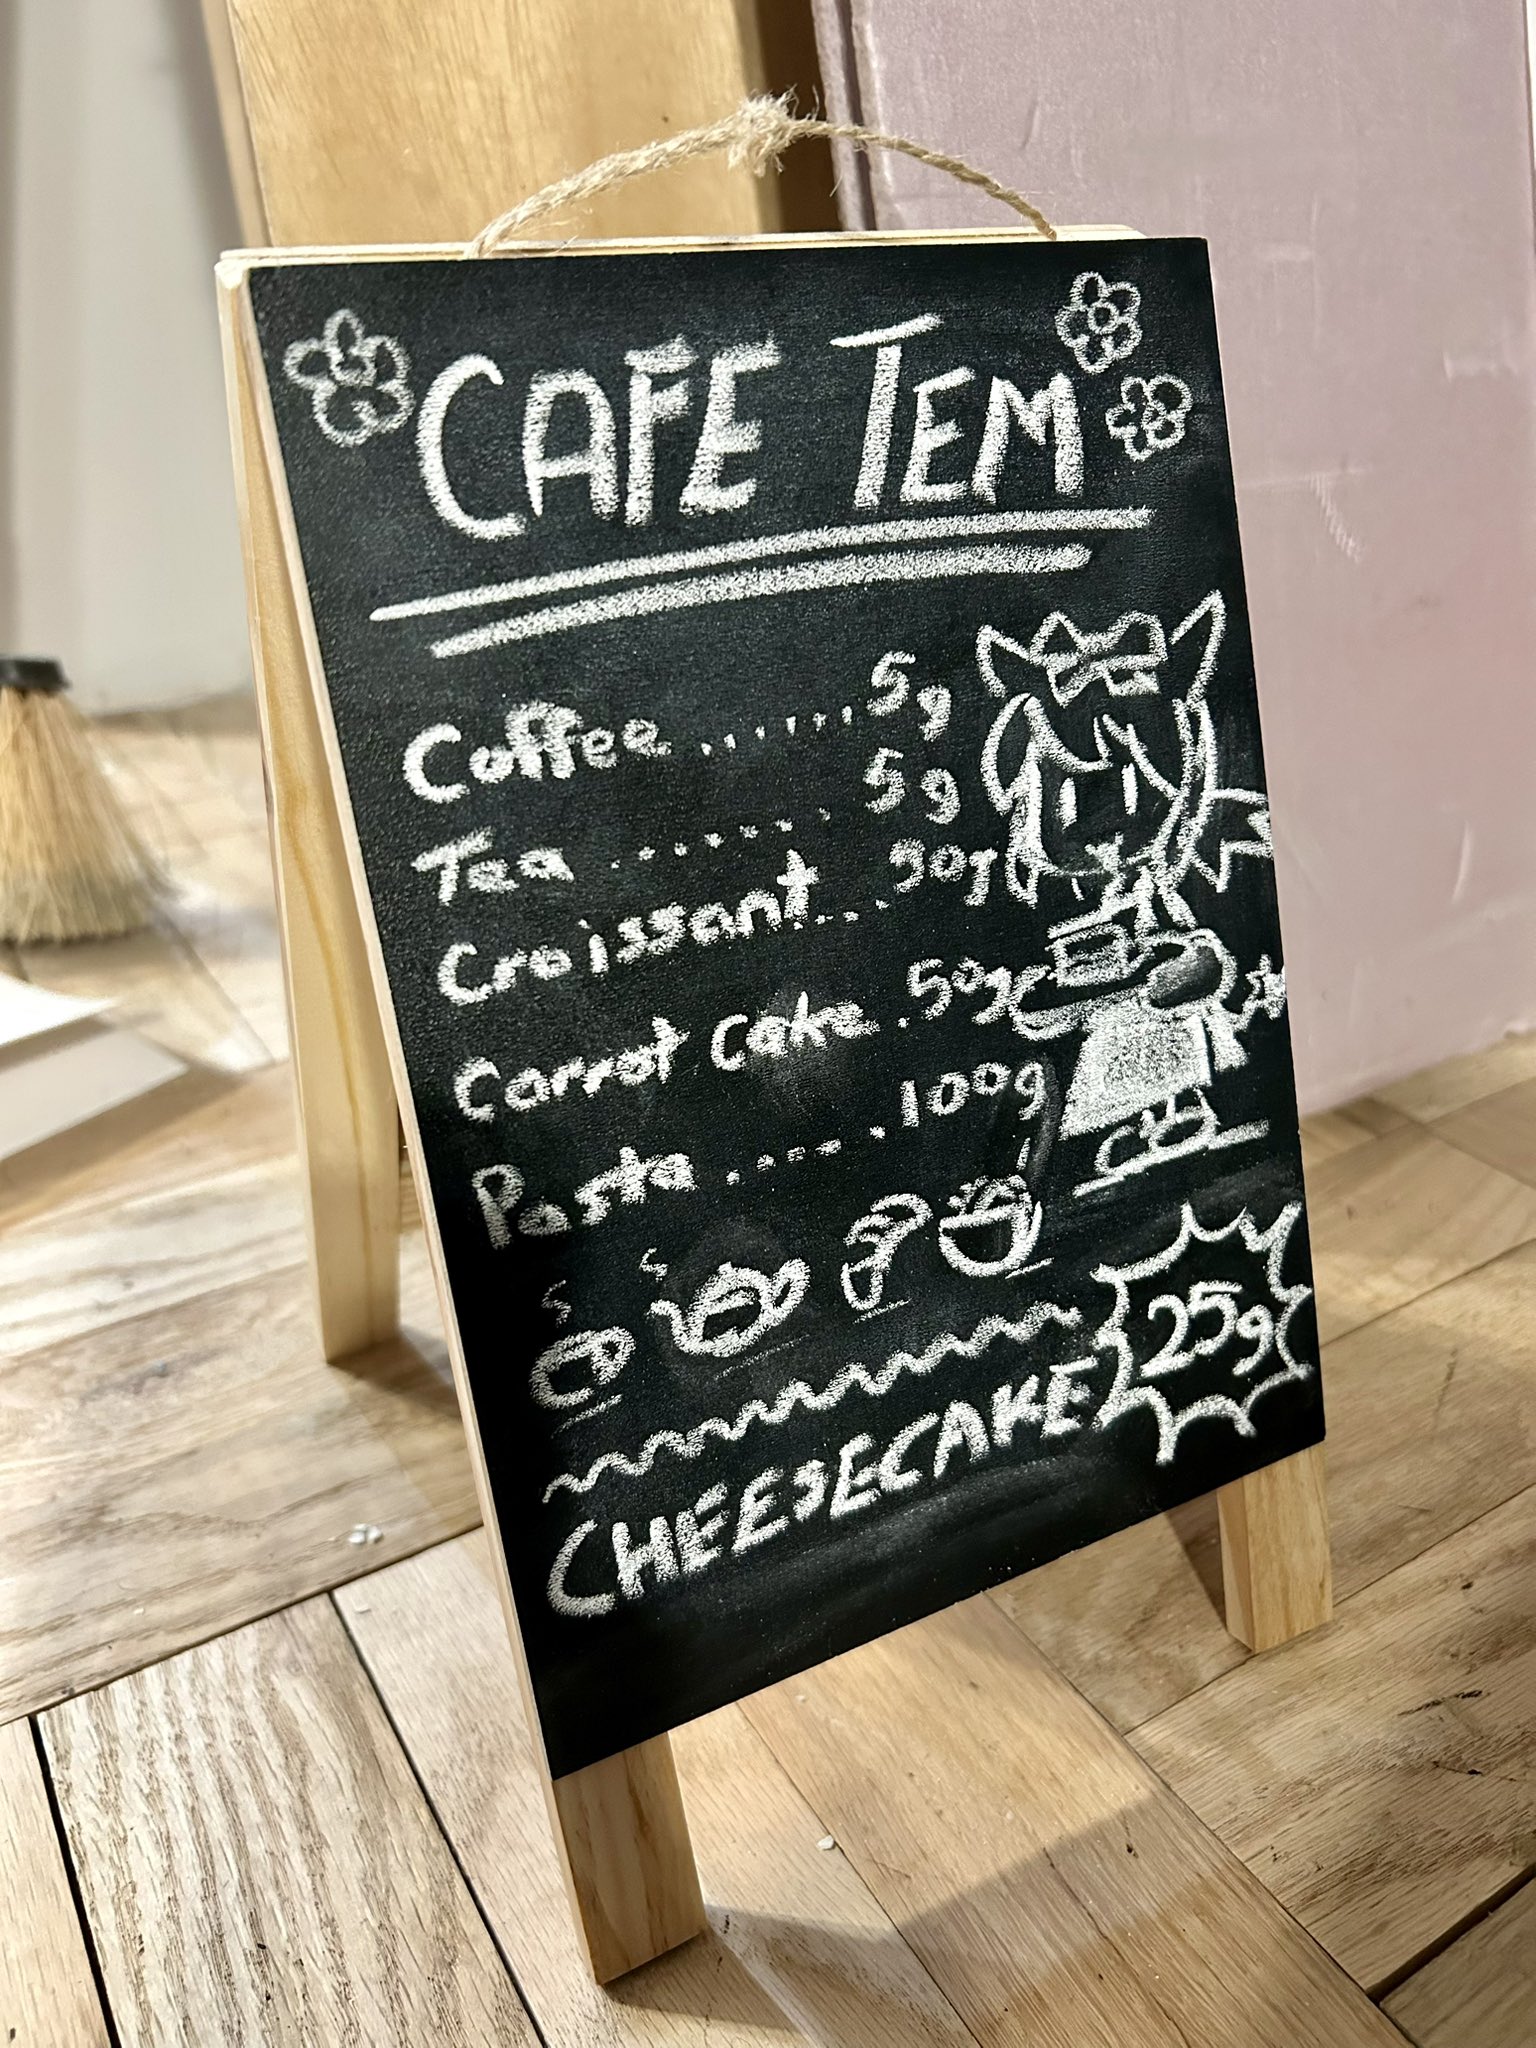 CAFE TEM
Coffee ........ 5g
Tea ........ 5g
Croissant.... 30g
Carrot Cake . 50g
Pasta ....... 100g
25g
CHEESECAKE